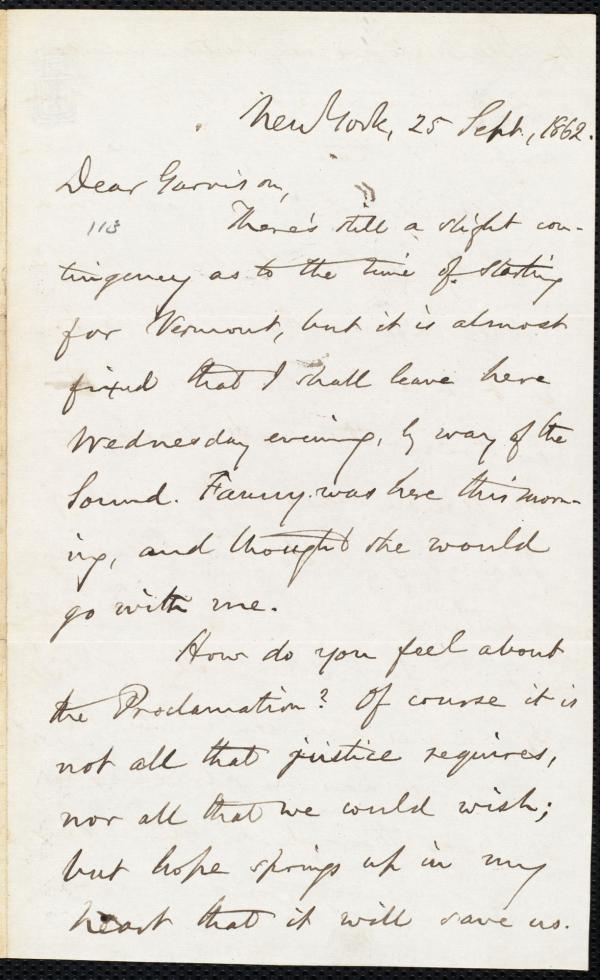 New York, 25 Sept., 1862.
Dear Garrison,
113 There's still a slight con-
tingency as to the time of starting
for Vermont, but it is almost
fixed that I shall leave here
Wednesday evening, by way of the
Sound. Fanny was here this morn-
ing, and thought she would
go with me.
How do you feel about
the Proclamation? Of course it is
not all that justice requires,
nor all that we could wish;
but hope springs up in my
heart that it will save us.